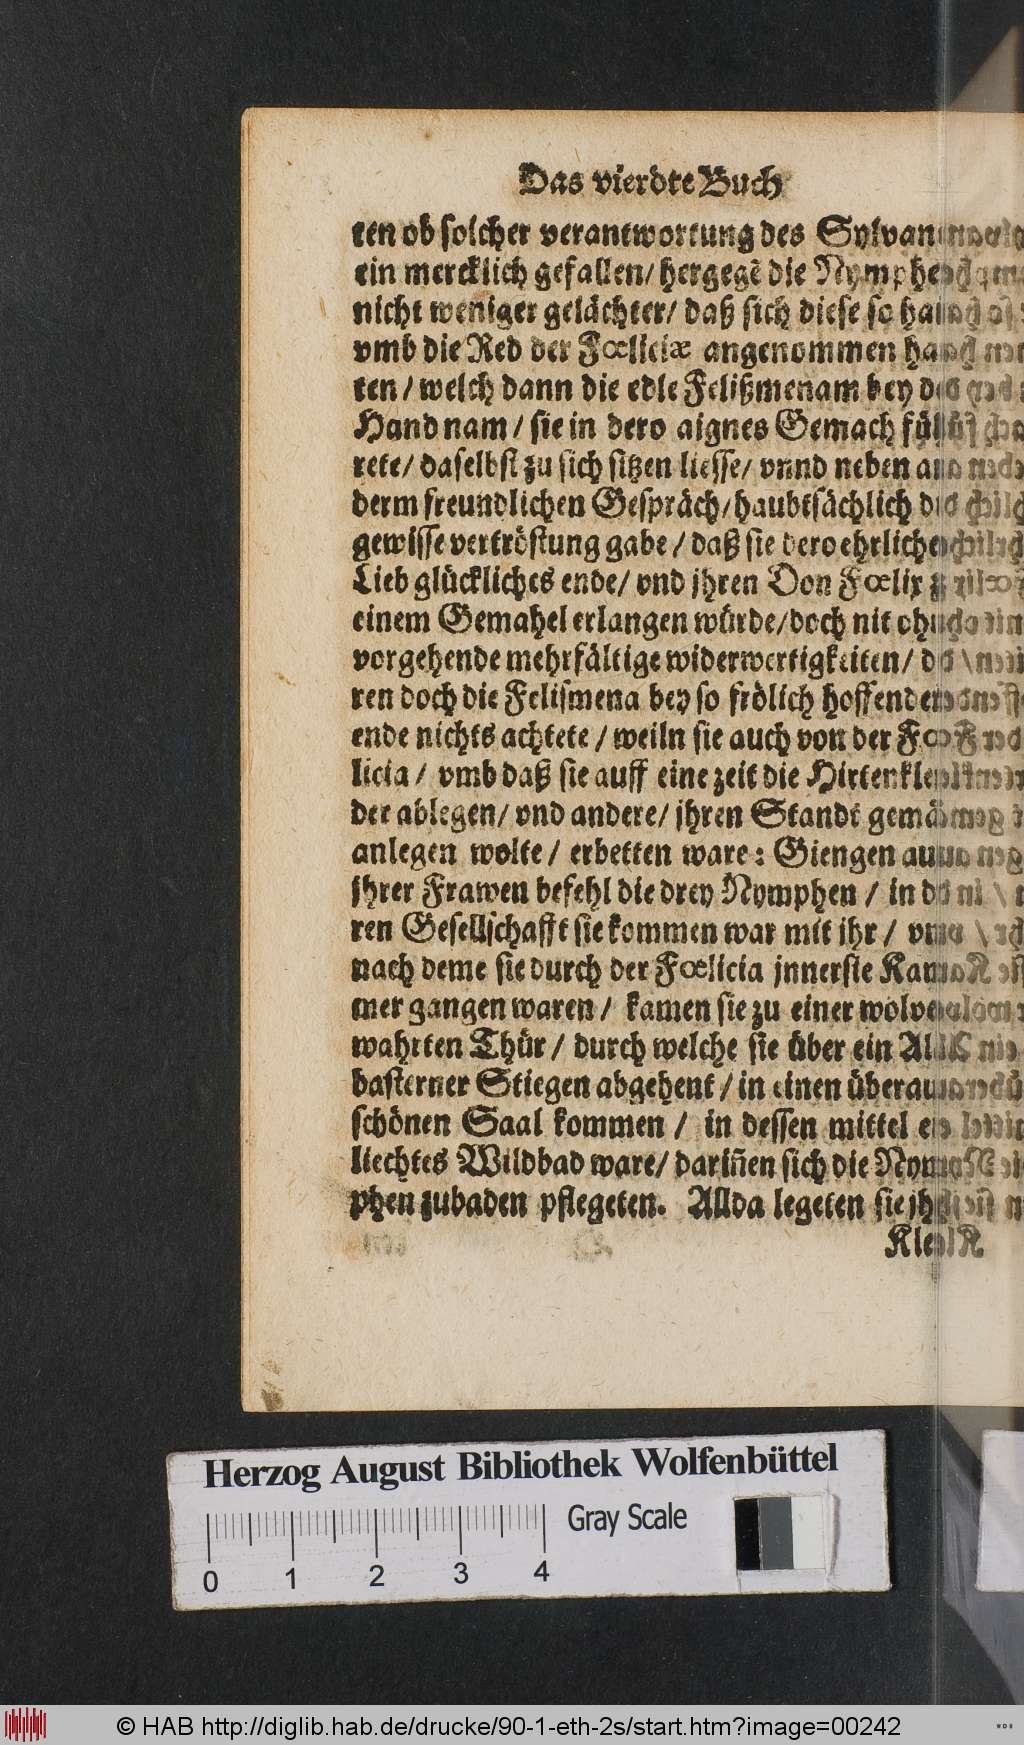 Das vierdte Buch
ten ob solcher verantwortung des Sylvan
ein mercklich gefallen/ hergegẽ die Nymphe
nicht weniger gelächter/ daß sich diese so
vmb die Red der Fœliciæ angenommen
ten/ welch dann die edle Felißmenam bey
Hand nam/ sie in dero aignes Gemach
rete/ daselbst zu sich sitzen liesse/ vnnd neben
derm freundlichen Gespräch/ haubtsächlich
gewisse vertröstung gabe/ daß sie dero ehrliche
Lieb glückliches ende/ vnd jhren Don Fœlix
einem Gemahel erlangen würde/ doch nit
vorgehende mehrfältige widerwertigkeiten/
ren doch die Felismena bey so frölich hoffendem
ende nichts achtete/ weiln sie auch von der Fœ
licia/ vmb daß sie auff eine zeit die Hirtenklei
der ablegen/ vnd andere/ jhren Standt gemä
anlegen wolte/ erbetten ware: Giengen
jhrer Frawen befehl die drey Nymphen/ in
ren Gesellschafft sie kommen war mit jhr/
nach deme sie durch der Fœlicia jnnerste Kam
mer gangen waren/ kamen sie zu einer wolve
wahrten Thür/ durch welche sie über ein Al
basterner Stiegen abgehent/ in einen überau
schönen Saal kommen/ in dessen mittel
liechtes Wildbad ware/ dariñen sich die Nym
phen zubaden pflegeten. Allda legeten sie
Kle
Herzog August Bibliothek Wolfenbüttel
Gray Scale
0 1 2 3 4
© HAB http://diglib.hab.de/drucke/90-1-eth-2s/start.htm?image=00242